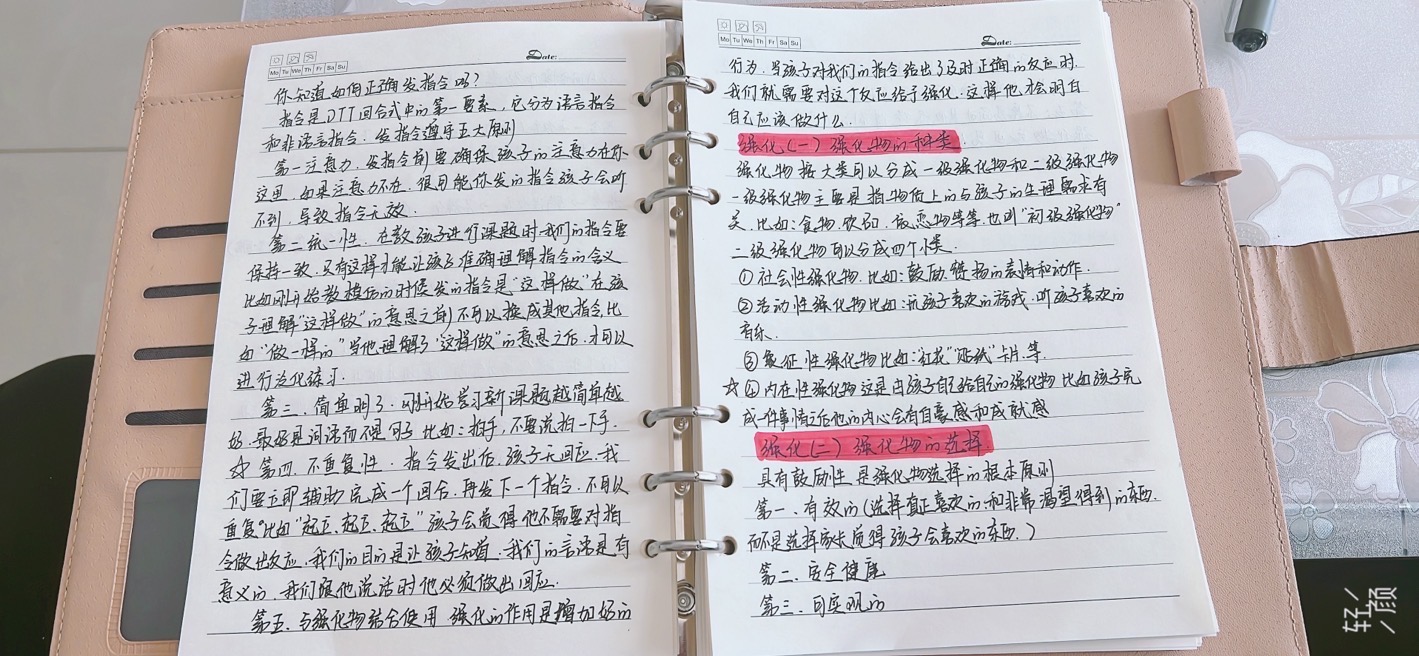 Mo Tu We Th Fr Sa Su
Date:
你知道如何正确发指令吗?
指令是DTT回合式中的第一要素，它分为语言指令
和非语言指令：发指令遵守五大原则
第一注意力，发指令前要确保孩子的注意力在你
这里，如果注意力不在，很可能你发的指令孩子会听
不到，导致指令无效．
第二统一性．在教孩子进行课题时我们的指令要
保持一致，只有这样才能让孩子准确理解指令的含义
比如刚开始教模仿的时候发的指令是“这样做”在孩
子理解“这样做”的意思之前不可以换成其他指令比
如“做一样的”当他理解了“这样做”的意思之后，才可以
进行泛化练习．
第三．简单明了：刚开始学习新课题越简单越
好，最好是词语而不是句子 比如：拍手，不要说拍一下手．
☆第四．不重复性．指令发出后，孩子无回应，我
们要立即辅助完成一个回合，再发下一个指令，不可以
重复“比如“起立、起立、起立”孩子会觉得他不需要对指
令做出反应，我们的目的是让孩子知道，我们的言语是有
意义的，我们跟他说话时他必须做出回应．
第五．与强化物结合使用 强化的作用是增加好的
Mo Tu We Th Fr Sa Su
Date:
行为．当孩子对我们的指令给出了及时正确的反应时，
我们就需要对这个反应给予强化．这样他才会明白
自己应该做什么．
强化(一) 强化物的种类．
强化物按大类可以分成一级强化物和二级强化物
一级强化物主要是指物质上的与孩子的生理需求有
关．比如：食物、饮品，依恋物等等也叫“初级强化物”
二级强化物可以分成四个小类．
①社会性强化物．比如：鼓励、赞扬的表情和动作．
②活动性强化物比如：玩孩子喜欢的游戏，听孩子喜欢的
音乐．
③象征性强化物比如：“红花”“贴纸”卡片．等．
☆④内在性强化物这是由孩子自己给自己的强化物 比如孩子完
成一件事情之后他的内心会有自豪感和成就感
强化(二) 强化物的选择
具有鼓励性是强化物选择的根本原则
第一、有效的(选择真正喜欢的和非常渴望得到的东西．
而不是选择家长觉得孩子会喜欢的东西．)
第二．安全健康
第三．可实现的
轻颜